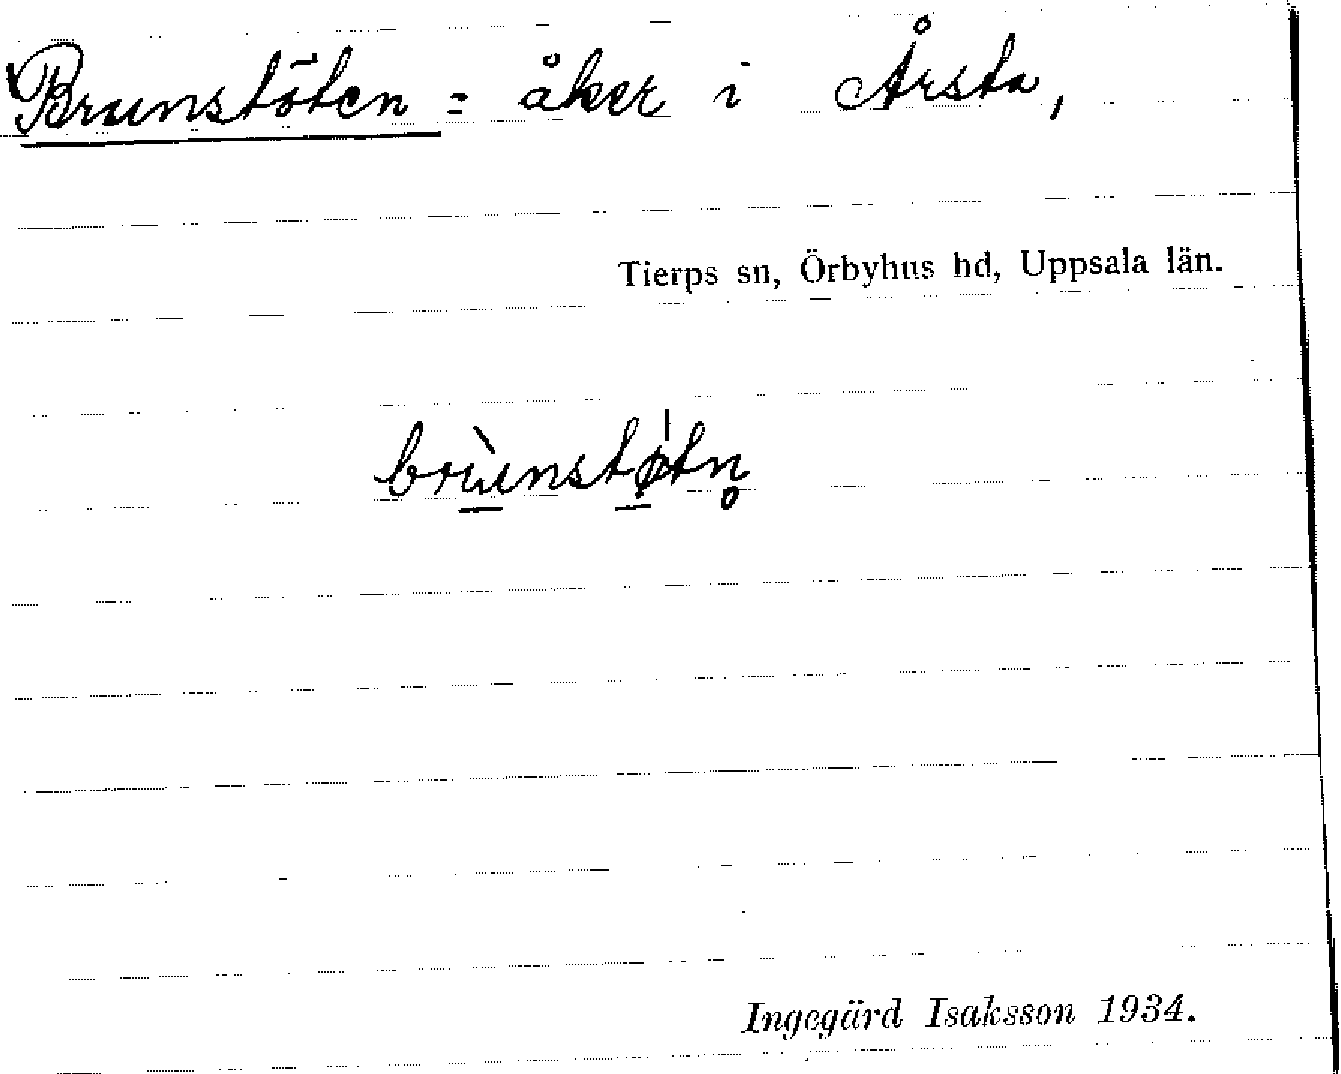 Brunstöten = åker i Årsta,
Tierps sn, Örbyhus hd, Uppsala län.
brùnstøtn̥
Ingegärd Isaksson 1934.